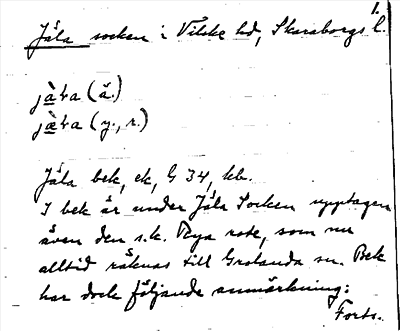 1.
Jäla socken i Vilske hd, Skaraborgs l.
jàla (ä.)
jæ̀la (y., r.)
Jäla bek, ek, G 34, kb.
I bek är under Jäla Socken upptagen
även den s.k. Nya rote, som nu
alltid räknas till Grolanda sn. Bek
har dock följande anmärkning:
Forts.